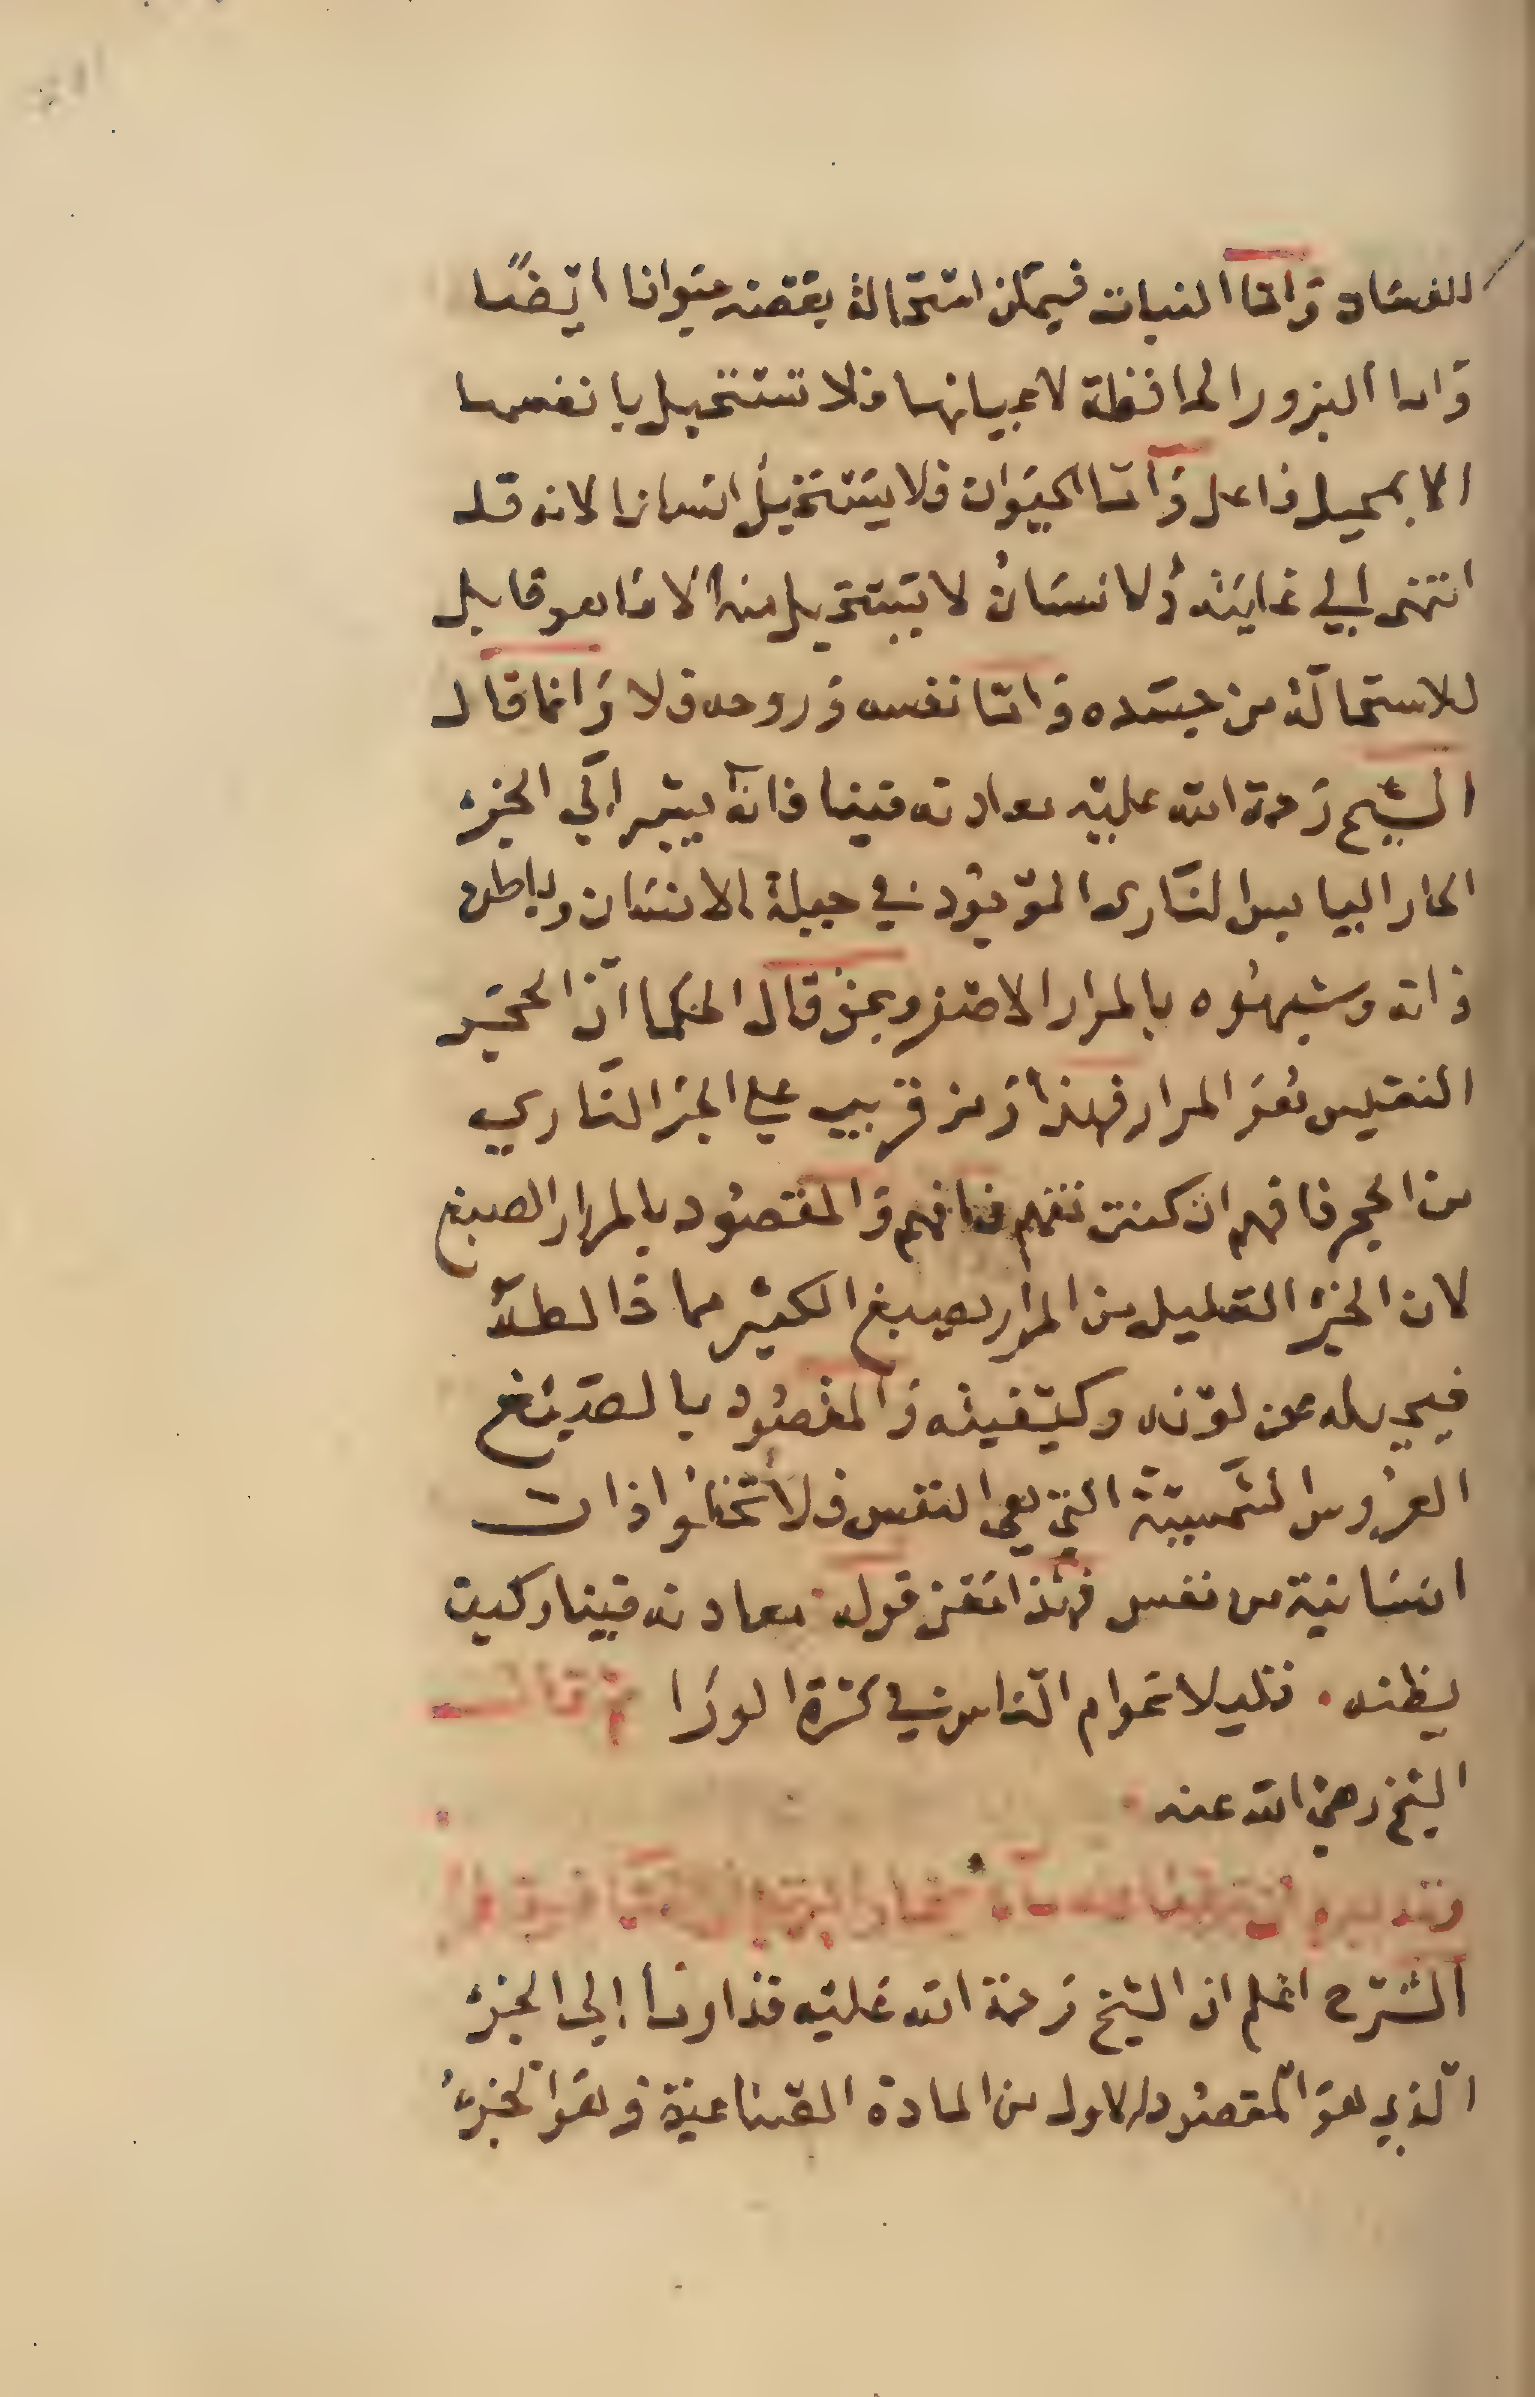 الفساد واما النبات فيمكن استحالة بعضه حيوانا ايضًا
واما البزور الحافظة لاعيانها فلا تستحيل بانفسها
الا بمحيل فاعل وأما الحيوان فلا يستحيل انسانا لانه قد
انتهى الي غايته والانسان لا يستحيل منه الا ما هو قابل
للاستحالة من جسده واما نفسه وروحه فلا وانما قال
الشيخ رحمة الله عليه معادنه فينا فانه يشير الي الجزء
الحار اليابس الناري الموجود في جبلة الانسان وباطن
ذاته وشبهوه بالمرار الاصفر وبحق قال الحكما ان الحجر
النفيس هو المرار فهذا رمز قريب علي الجز الناري
من الحجر فافهم ان كنت تفهم فافهم والمقصود بالمرار الصبغ
لان الجزء القليل من المرار يصبغ الكثير مما خالطه
فيحيله عن لونه وكيفيته والمقصود بالصديغ
العروس الشمسية التي هي النفس فلا تخلوا ذات
انسانية من نفس فهذا معنى قوله معادنه فينا وكيف
يظنه . قليلا عوام الناس في كثرة الورا ثم قال
الشيخ رضي الله عنه
الشرح اعلم ان الشيخ رحمة الله عليه قد اومأ إلى الجزء
الذي هو المقصود الاول من المادة الصناعية وهو الجزء